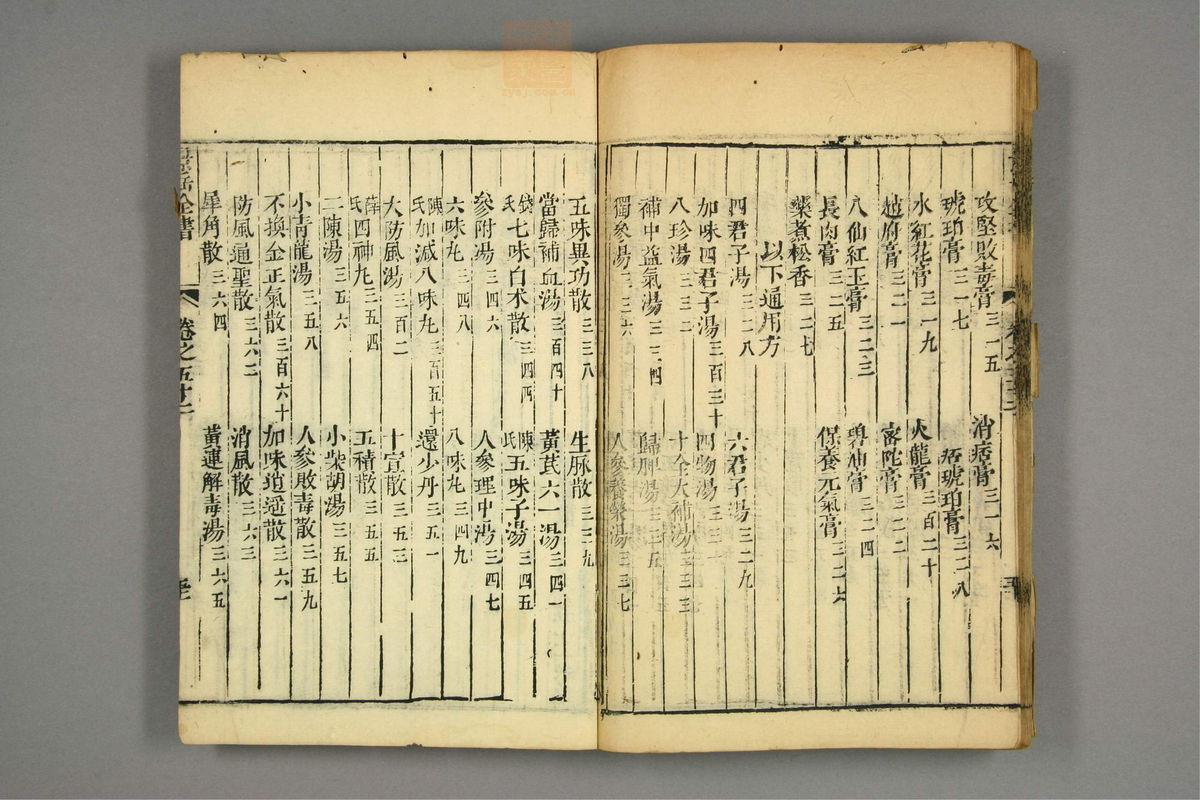 攻堅敗毒膏三一五 消痞膏三一六
琥珀膏三一七 痞琥珀膏三一八
水紅花膏三一九 火龍膏三百二十
趙府膏三二一 密陀膏三二二
八仙紅玉膏三二三 碧油膏三二四
長肉膏三二五 保養元氣膏三二六
藥煮松香三二七
以下通用方
四君子湯三二八 六君子湯三二九
加味四君子湯三百三十 四物湯三三一
八珍湯三三二 十全大補湯三三三
補中益氣湯三三四 歸脾湯三三五
獨參湯三三六 人參養榮湯三三七
五味異功散三三八 生脉散三三九
當歸補血湯三百四十 黃芪六一湯三四一
錢氏七味白术散三四四 陳氏五味子湯三四五
參附湯三四六 人參理中湯三四七
六味丸三四八 八味丸三四九
陳氏加減八味丸三百五十 還少丹三五一
大防風湯三百二 十宣散三五三
薛氏四神丸三五四 五積散三五五
二陳湯三五六 小柴胡湯三五七
小青龍湯三五八 人參敗毒散三五九
不換金正氣散三百六十 加味逍遥散三六一
防風通聖散三六二 消風散三六三
犀角散三六四 黃連解毒湯三六五
全書 卷之五十二